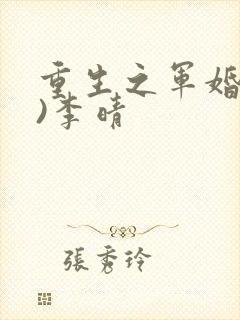 重生之军婚
)李晴
張秀玲